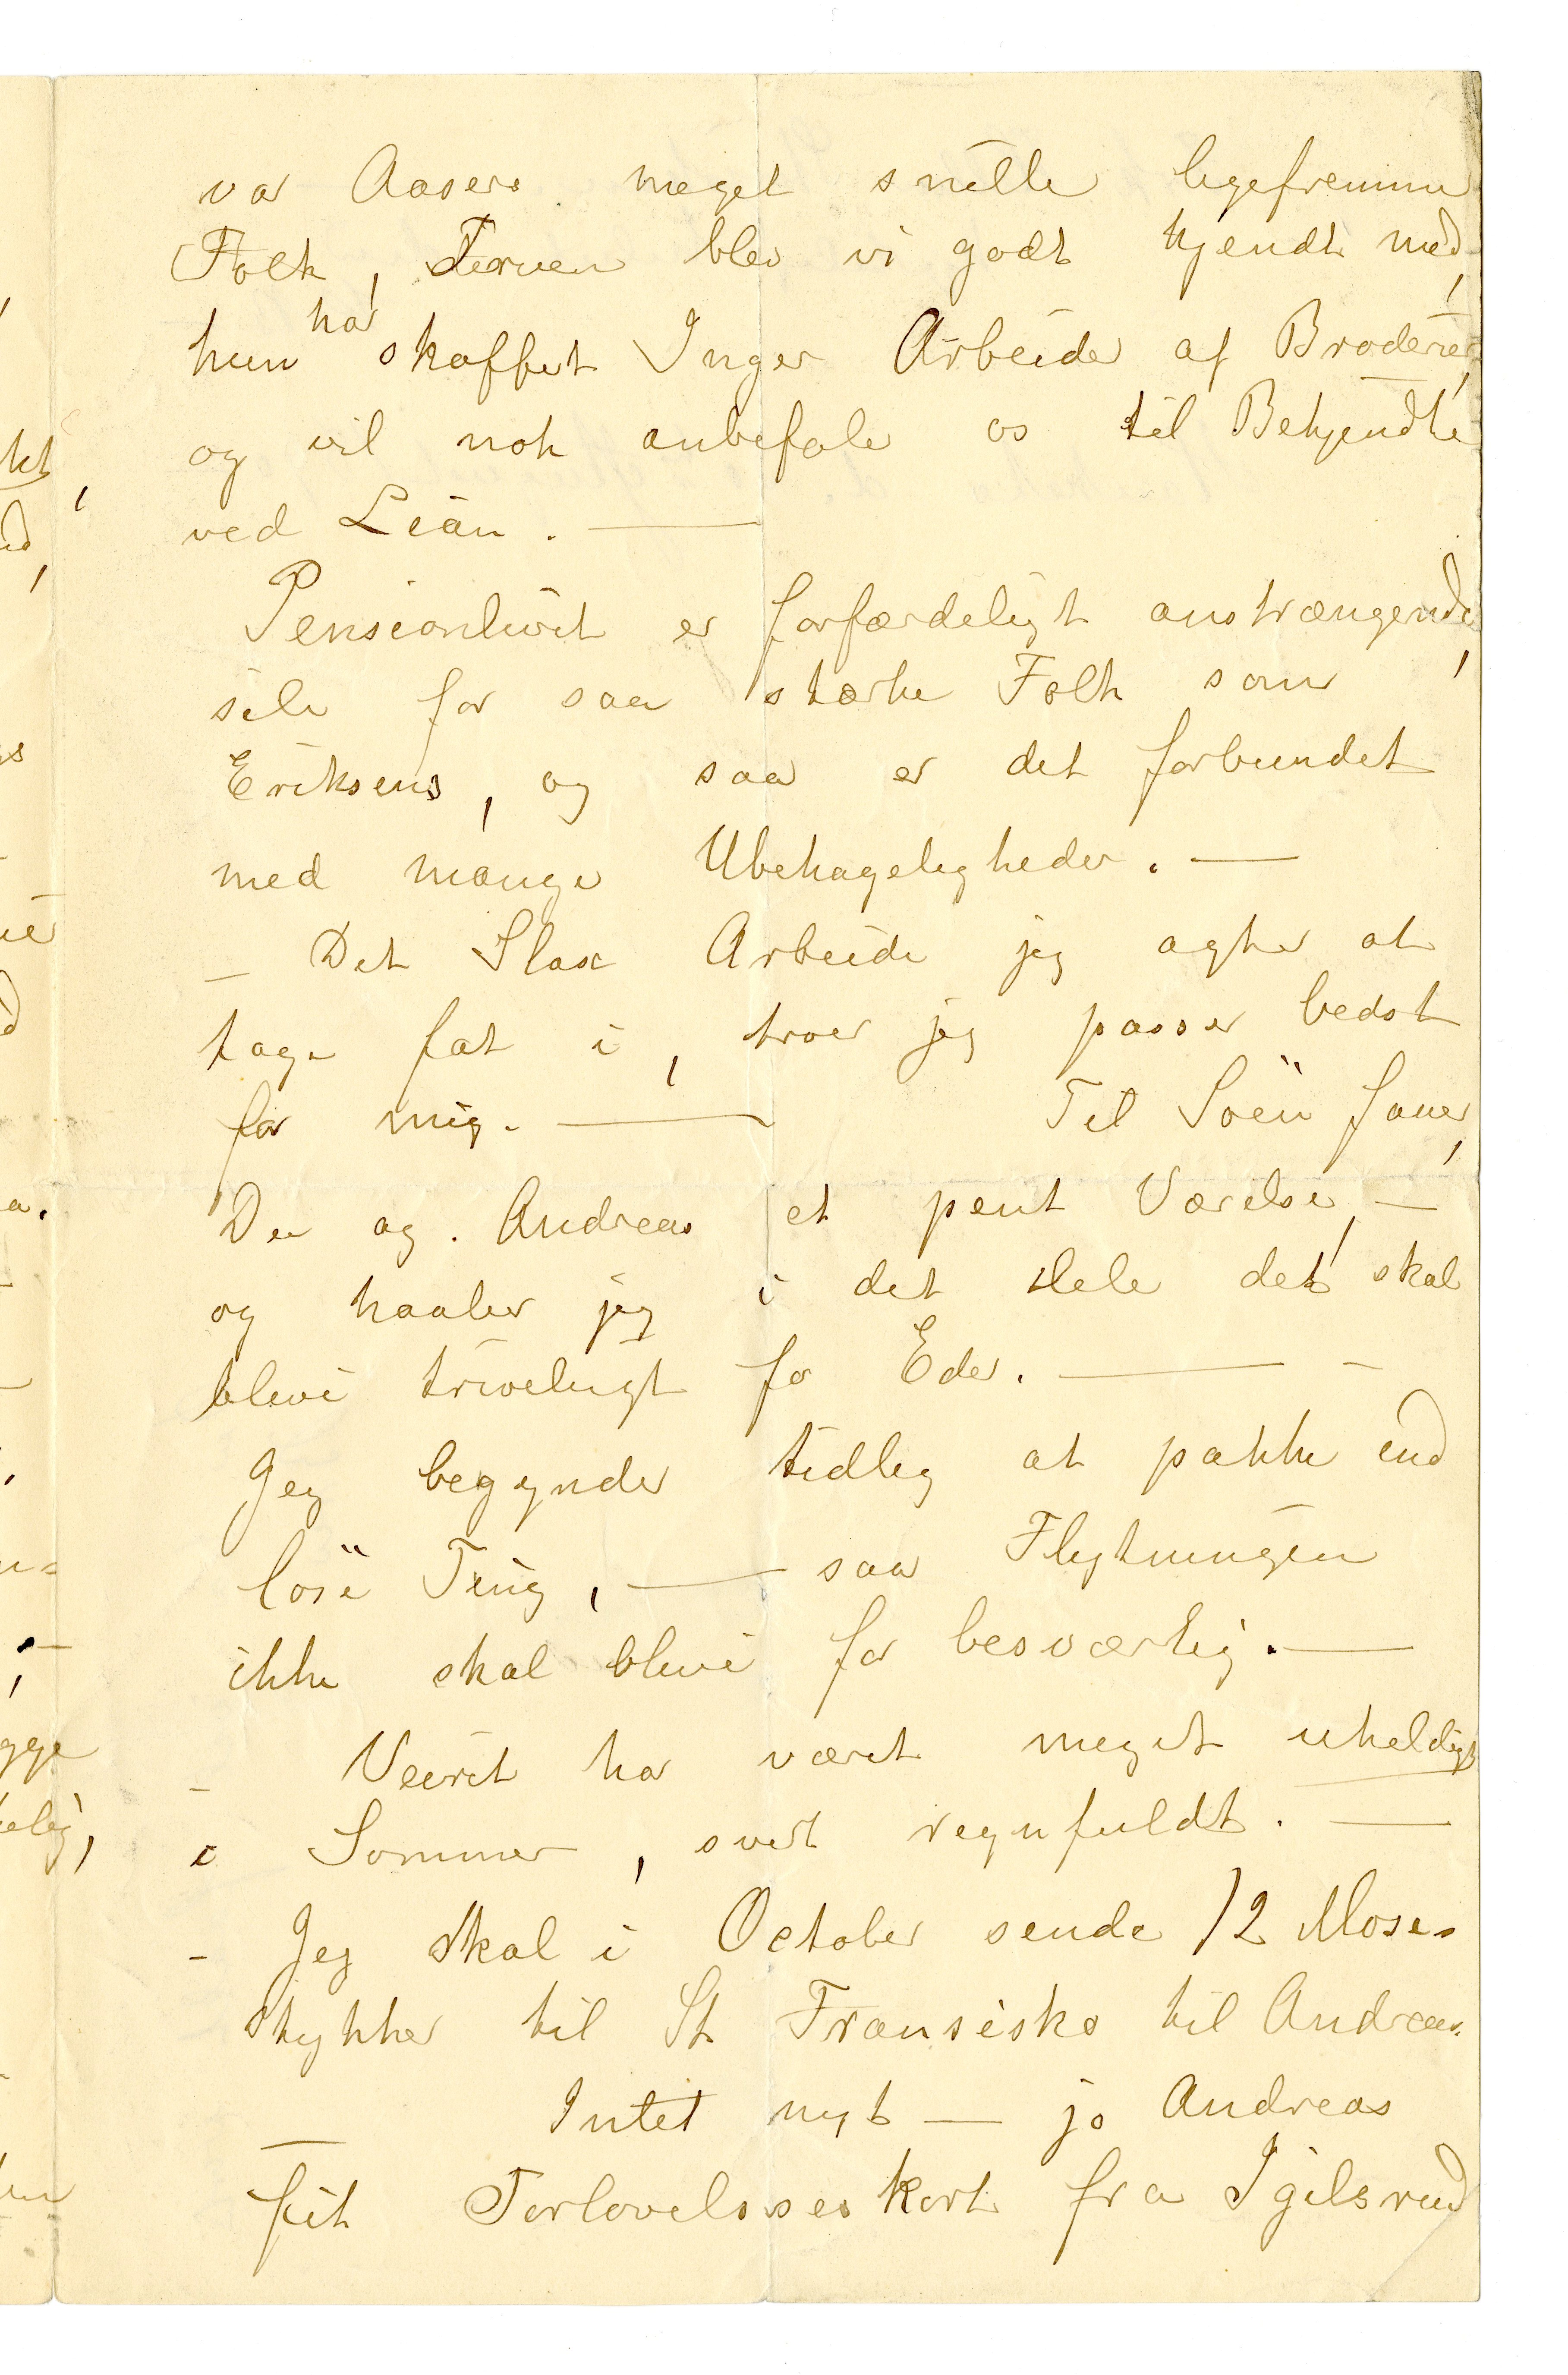 var Aasers meget snille ligefremme
Folk, Fruen blev vi godt kjendt med,
hun har skaffet Inger Arbeide af Broderier,
og vil nok anbefale os til Bekjendte
ved Lian. —
Pensionlivet er forfærdeligt anstrængende,
selv for saa stærke Folk som
Eriksens, og saa er det forbundet
med mange Ubehageligheder. —
— Det Slags Arbeide jeg agter at
tage fat i, troer jeg passer bedst
for mig. — Til Søen faaer,
Du og Andreas et pent Værelse, —
og haaber jeg i det Hele det skal
blive triveligt for Eder. — —
Jeg begynder tidlig at pakke ind
løse Ting, — saa Flytningen
ikke skal blive for besværlig. —
— Veiret har været meget uheldigt
i Sommer, svært regnfuldt. —
— Jeg skal i October sende 12 Mose-
stykker til St Fransisko til Andreas.
Intet nyt — jo Andreas
— fik Forlovelseskort fra Igelsrud